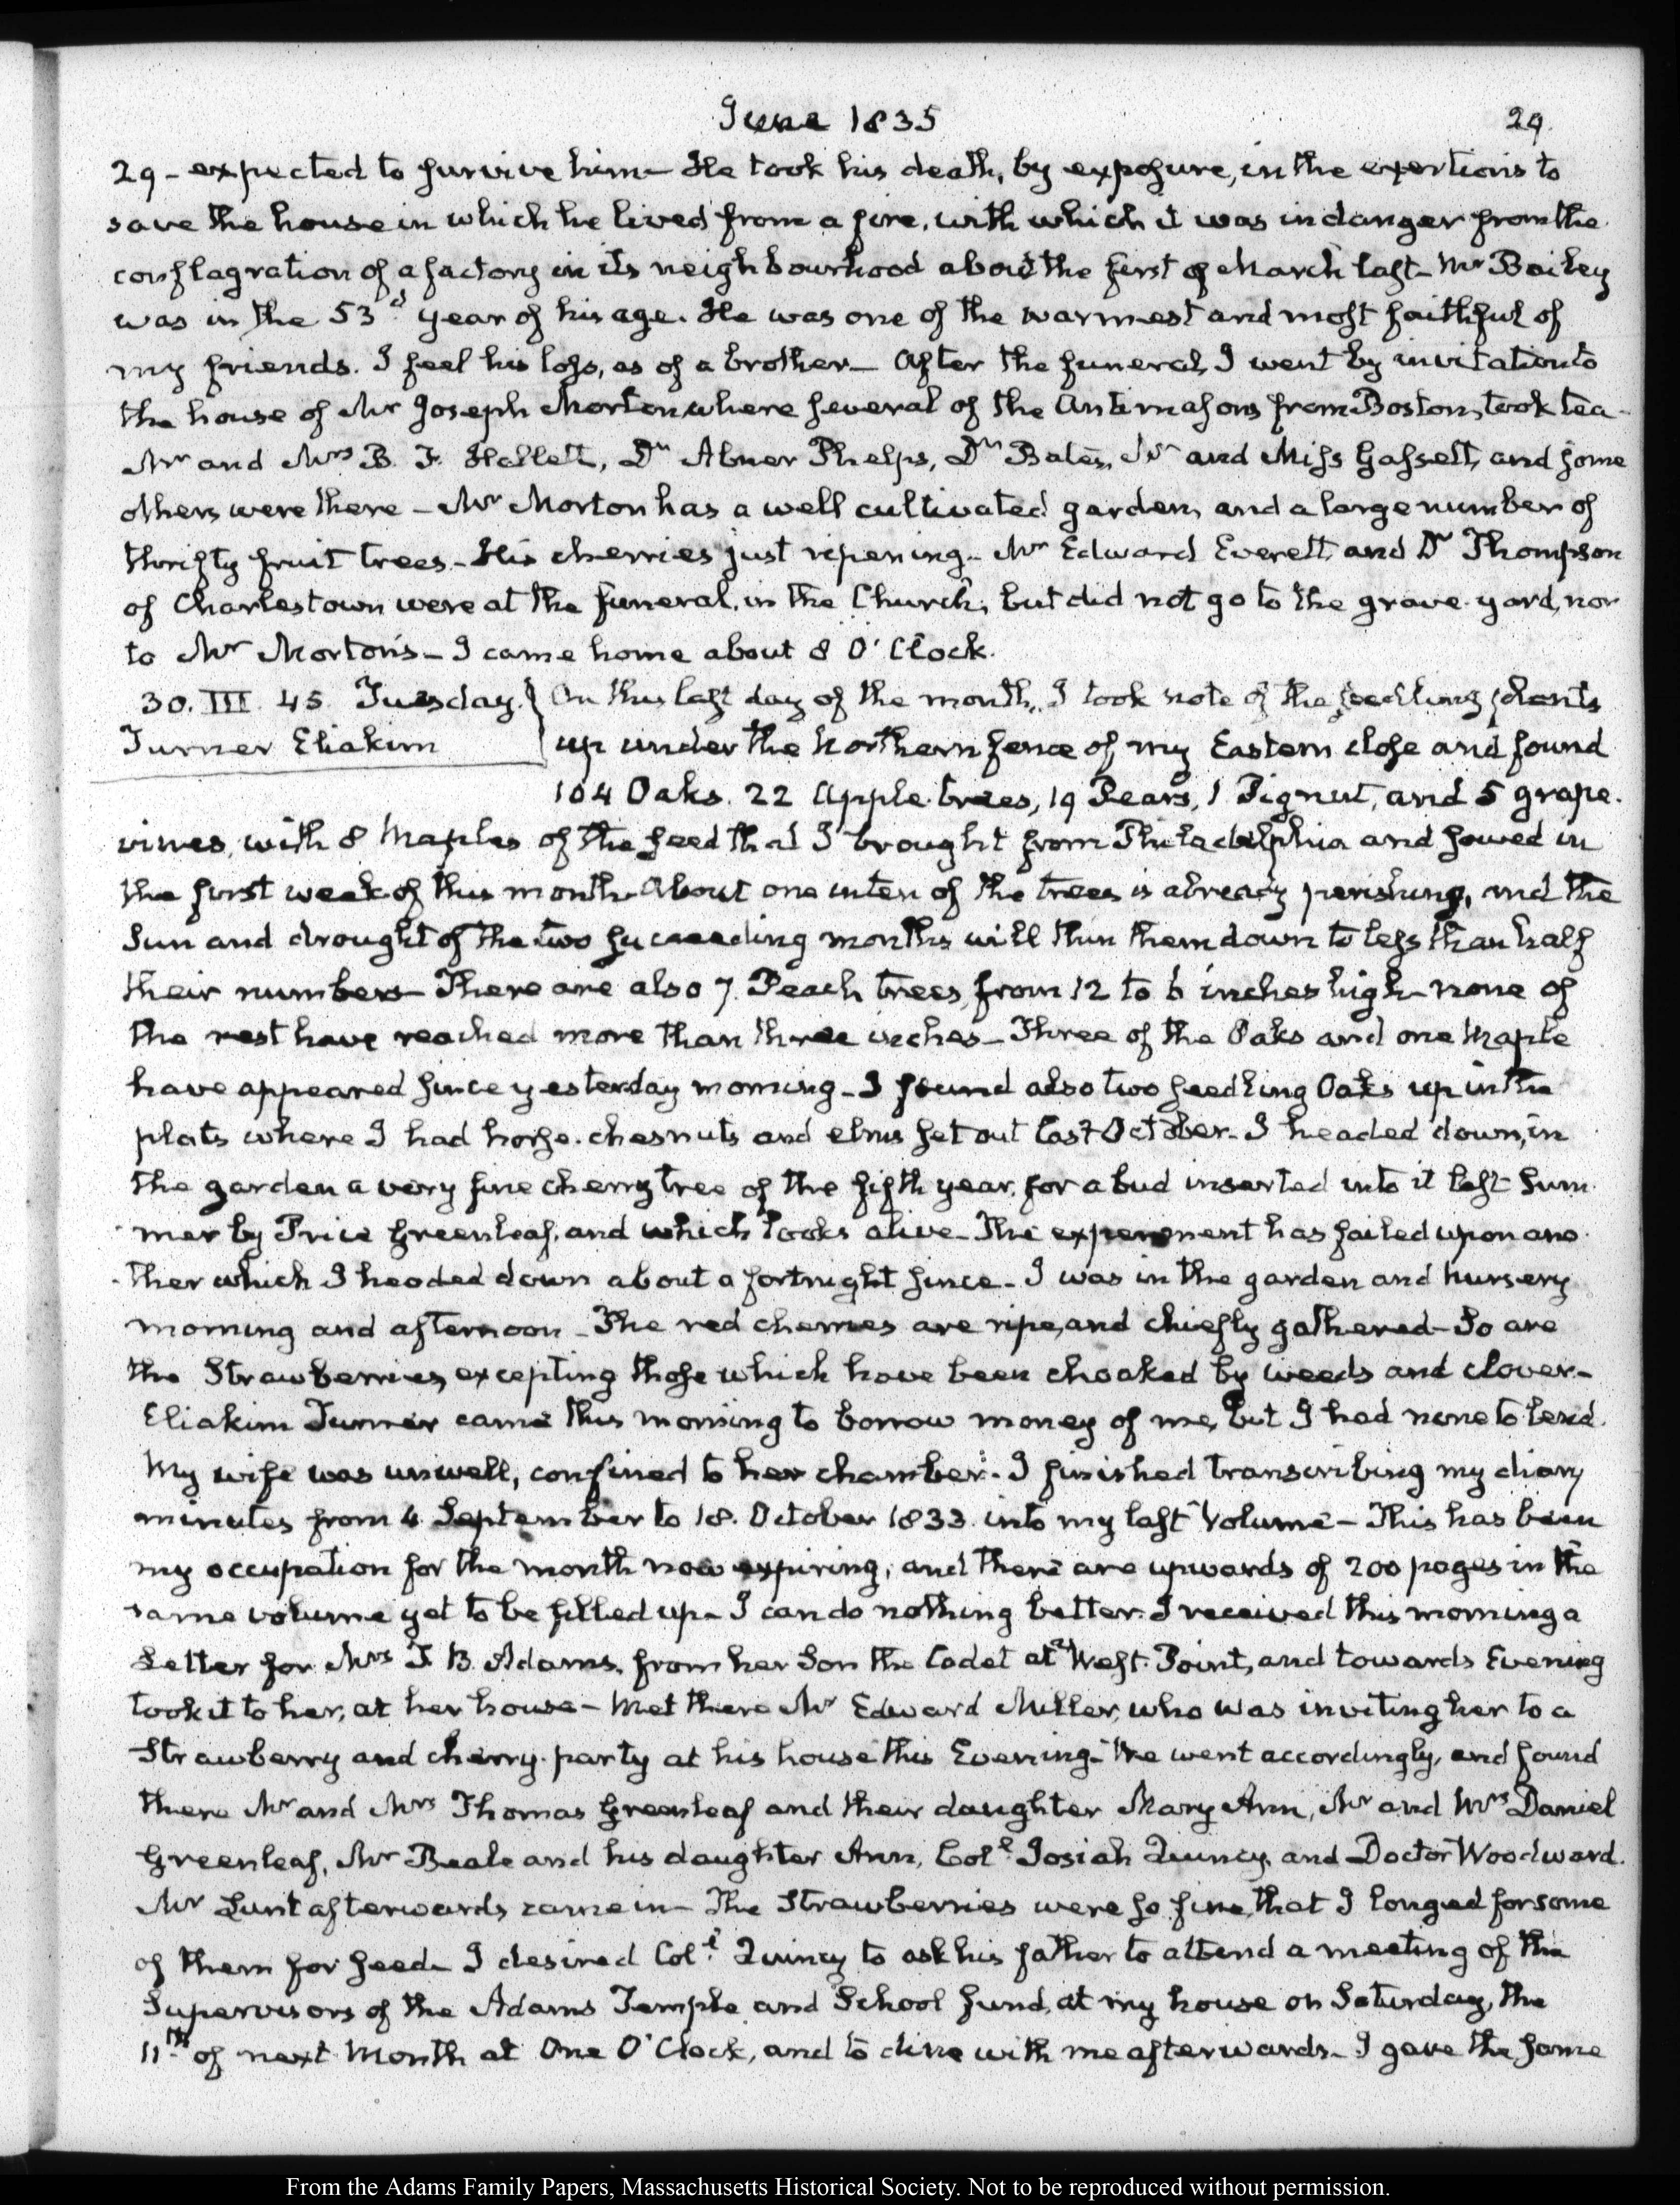 June 1835
29.
29 – expected to survive him – He took his death, by exposure, in the exertions to
save the house in which he lived from a fire, with which it was in danger from the
conflagration of a factory in its neighbourhood about the first of March last – Mr Bailey
was in the 53d. year of his age. He was one of the warmest and most faithful of
my friends. I feel his loss, as of a brother – After the funeral, I went by invitation to
the house of Mr Joseph Morton where several of the Antimasons from Boston, took tea –
Mr and Mrs B. F. Hallett, Dr Abner Phelps, Dr Bates, Mr and Miss Gassett, and some
others were there – Mr Morton has a well cultivated garden, and a large number of
thrifty fruit trees – His cherries just ripening – Mr Edward Everett, and Dr Thompson
of Charlestown were at the funeral, in the Church, but did not go to the grave-yard, nor
to Mr Morton's – I came home about 8 O'Clock.
30. III. 45. Tuesday. } On this last day of the month, I took note of the seedling plants
Turner Eliakim } up under the Northern fence of my Eastern close and found
104 Oaks. 22 Apple-trees, 19 Pears, 1 Pignut, and 5 grape-
vines, with 8 Maples of the seed that I brought from Philadelphia and sowed in
the first week of this month – About one in ten of the trees is already perishing, and the
Sun and drought of the two succeeding months will thin them down to less than half
their numbers – There are also 7. Peach trees, from 12 to 6 inches high – none of
the rest have reached more than three inches – Three of the Oaks and one Maple
have appeared since yesterday morning – I found also two seedling Oaks up in the
plats where I had horse-chesnuts and elms set out last October – I headed down, in
the garden a very fine cherry tree of the fifth year, for a bud inserted into it last Sum-
mer by Price Greenleaf, and which looks alive – The experiment has failed upon ano-
ther which I headed down about a fortnight since – I was in the garden and nursery
morning and afternoon – The red cherries are ripe, and chiefly gathered – So are
the Strawberries, excepting those which have been choaked by weeds and clover –
Eliakim Turner came this morning to borrow money of me, but I had none to lend.
My wife was unwell, confined to her chamber – I finished transcribing my diary
minutes from 4 September to 18. October 1833. into my last Volume – This has been
my occupation for the month now expiring, and there are upwards of 200 pages in the
same volume yet to be filled up – I can do nothing better. I received this morning a
Letter for Mrs T. B. Adams, from her Son the Cadet at West-Point, and towards Evening
took it to her, at her house – Met there Mr Edward Miller, who was inviting her to a
Strawberry and cherry-party at his house this Evening – We went accordingly, and found
there Mr and Mrs Thomas Greenleaf and their daughter Mary Ann, Mr and Mrs Daniel
Greenleaf, Mr Beale and his daughter Ann, Coll. Josiah Quincy, and Doctor Woodward.
Mr Lunt afterwards came in – The Strawberries were so fine, that I longed for some
of them for seed – I desired Coll. Quincy to ask his father to attend a meeting of the
Supervisors of the Adams Temple and School fund, at my house on Saturday, the
11th. of next Month at One O'Clock, and to dine with me afterwards – I gave the same
From the Adams Family Papers, Massachusetts Historical Society. Not to be reproduced without permission.